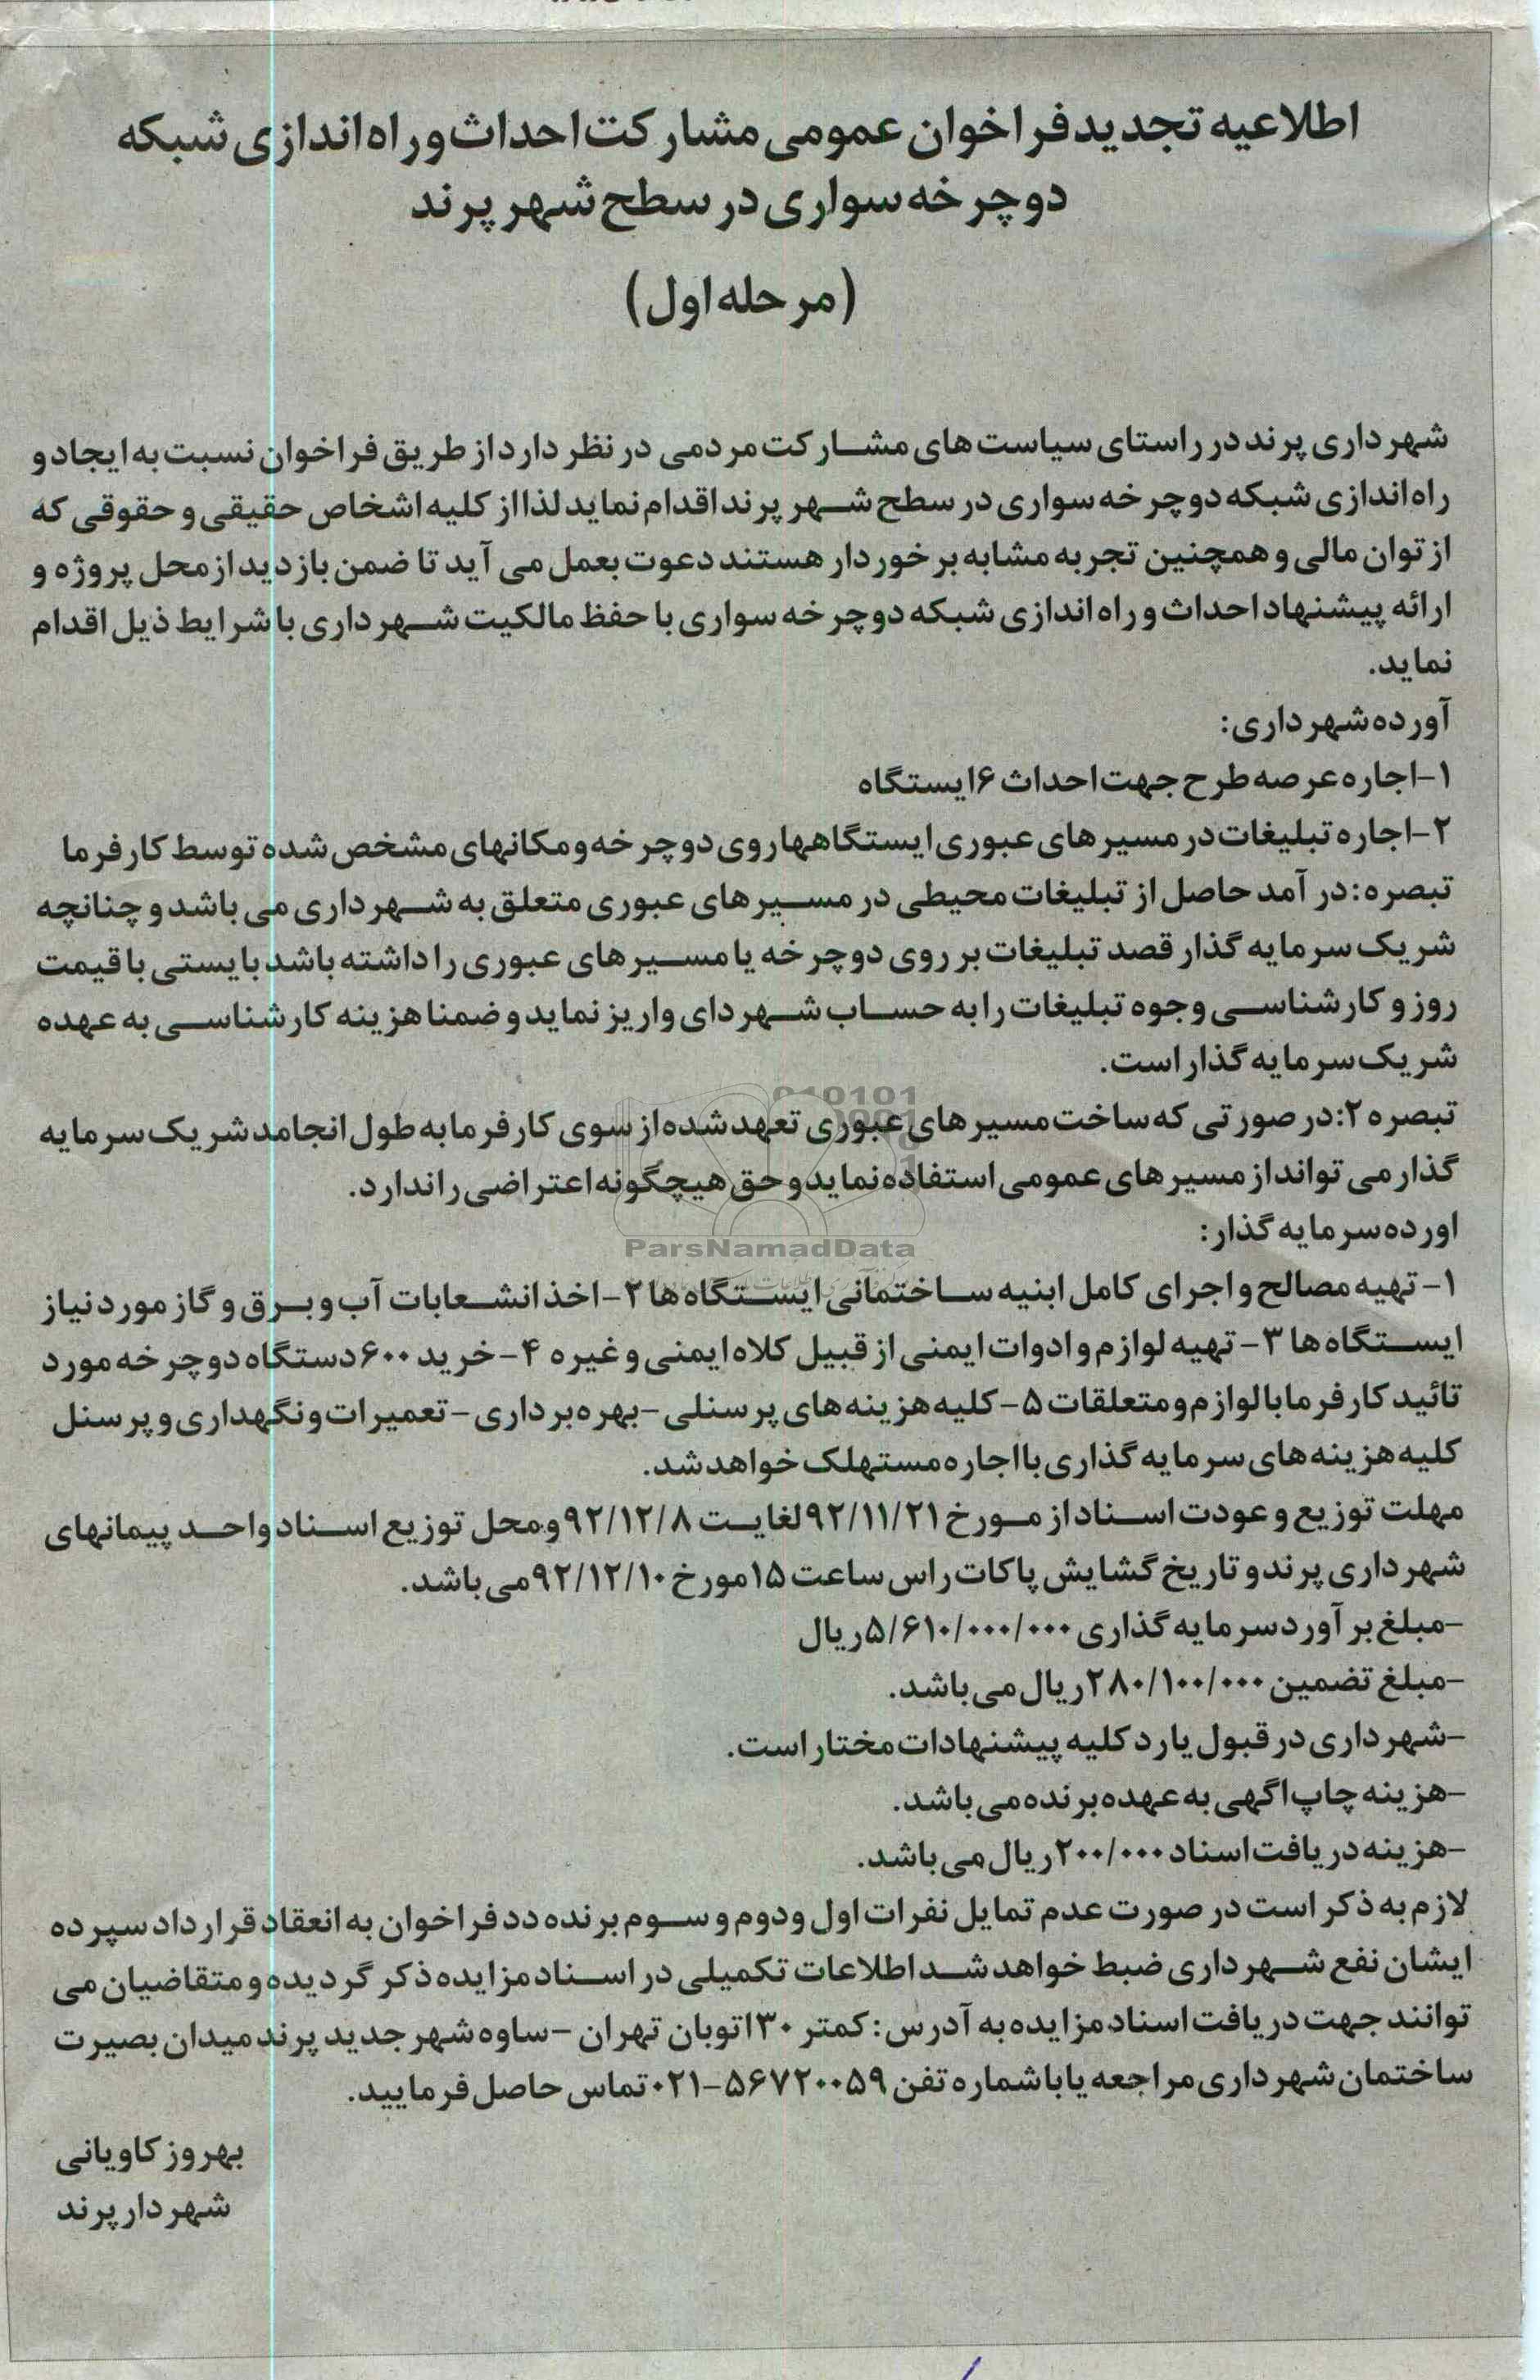 اطلاعیه تجدید فراخوان عمومی مشارکت احداث و راه اندازی شبکه
دوچرخه سواری در سطح شهر پرند
(مرحله اول)
شهرداری پرند در راستای سیاست های مشارکت مردمی در نظر دارد از طریق فراخوان نسبت به ایجاد و
راه اندازی شبکه دوچرخه سواری در سطح شهر پرند اقدام نماید لذا از کلیه اشخاص حقیقی و حقوقی که
از توان مالی و همچنین تجربه مشابه برخوردار هستند دعوت بعمل می آید تا ضمن بازدید از محل پروژه و
ارائه پیشنهاد احداث و راه اندازی شبکه دوچرخه سواری با حفظ مالکیت شهرداری با شرایط ذیل اقدام
نماید.
آورده شهرداری:
۱-اجاره عرصه طرح جهت احداث ۶ ایستگاه
۲-اجاره تبلیغات در مسیرهای عبوری ایستگاهها روی دوچرخه و مکانهای مشخص شده توسط کارفرما
تبصره: درآمد حاصل از تبلیغات محیطی در مسیرهای عبوری متعلق به شهرداری می باشد و چنانچه
شریک سرمایه گذار قصد تبلیغات بر روی دوچرخه یا مسیرهای عبوری را داشته باشد بایستی با قیمت
روز و کارشناسی وجوه تبلیغات را به حساب شهردای واریز نماید و ضمنا هزینه کارشناسی به عهده
شریک سرمایه گذار است.
تبصره ۲: در صورتی که ساخت مسیرهای عبوری تعهد شده از سوی کارفرما به طول انجامد شریک سرمایه
گذار می تواند از مسیرهای عمومی استفاده نماید و حق هیچگونه اعتراضی را ندارد.
اورده سرمایه گذار:
۱- تهیه مصالح و اجرای کامل ابنیه ساختمانی ایستگاه ها ۲-اخذ انشعابات آب و برق و گاز مورد نیاز
ایستگاه ها ۳- تهیه لوازم و ادوات ایمنی از قبیل کلاه ایمنی و غیره ۴-خرید ۶۰۰ دستگاه دوچرخه مورد
تائید کارفرما با لوازم و متعلقات ۵-کلیه هزینه های پرسنلی-بهره برداری-تعمیرات و نگهداری و پرسنل
کلیه هزینه های سرمایه گذاری با اجاره مستهلک خواهد شد.
مهلت توزیع و عودت اسناد از مورخ ۹۲/۱۱/۲۱ لغایت ۹۲/۱۲/۸ و محل توزیع اسناد واحد پیمانهای
شهرداری پرند و تاریخ گشایش پاکات راس ساعت ۱۵ مورخ ۹۲/۱۲/۱۰ می باشد.
-مبلغ برآورد سرمایه گذاری ۵/۶۱۰/۰۰۰/۰۰۰ ریال
-مبلغ تضمین ۲۸۰/۱۰۰/۰۰۰ ریال می باشد.
-شهرداری در قبول یا رد کلیه پیشنهادات مختار است.
-هزینه چاپ اگهی به عهده برنده می باشد.
-هزینه دریافت اسناد ۲۰۰/۰۰۰ ریال می باشد.
لازم به ذکر است در صورت عدم تمایل نفرات اول و دوم و سوم برنده دد فراخوان به انعقاد قرارداد سپرده
ایشان نفع شهرداری ضبط خواهد شد اطلاعات تکمیلی در اسناد مزایده ذکر گردیده و متقاضیان می
توانند جهت دریافت اسناد مزایده به آدرس: کمتر ۳۰ اتوبان تهران -ساوه شهر جدید پرند میدان بصیرت
ساختمان شهرداری مراجعه یا با شماره تفن ۵۶۷۲۰۰۵۹-۰۲۱ تماس حاصل فرمایید.
بهروز کاویانی
شهردار پرند
ParsNamadData